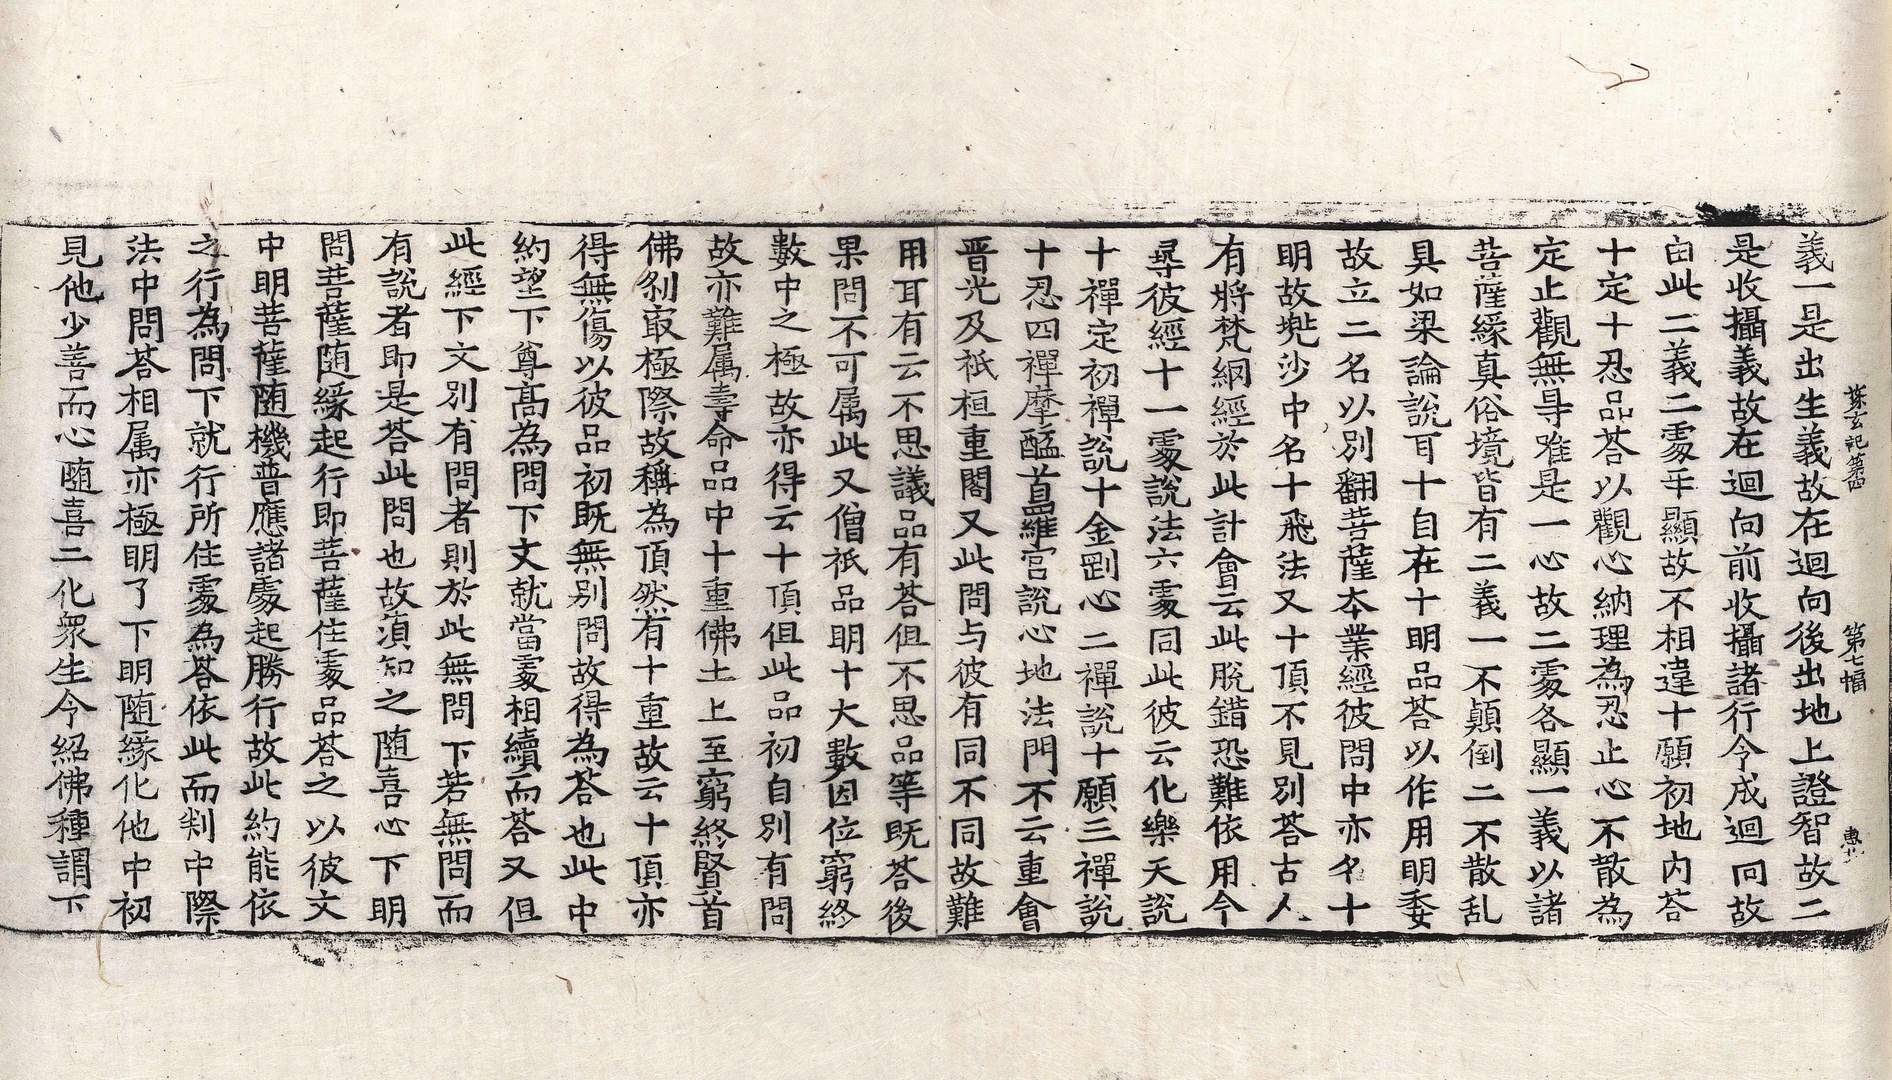 探玄記第四 第七幅 惠
義一是出生義故在迴向後出地上證智故二
是收攝義故在迴向前收攝諸行令成迴向故
由此二義二䖏牙顯故不相違十願初地内荅
十定十忍品荅以觀心納理為忍止心不散為
定止觀無㝵唯是一心故二䖏各顯一義以諸
菩薩緣真俗境皆有二義一不顛倒二不散乱
具如梁論說耳十自在十明品荅以作用明委
故立二名以別翻菩薩本業經彼問中亦名十
明故兠沙中名十飛法又十頂不見別荅古人
有將梵網經於此計會云此脫錯恐難依用今
尋彼經十一䖏說法六䖏同此彼云化樂天說
十禪定初禪說十金剛心二禪說十願三禪說
十忍四禪摩醯首羅宫說心地法門不云重會
晋光及祇桓重閣又此問与彼有同不同故難
用耳有云不思議品有荅但不思品等既荅後
果問不可属此又僧祇品明十大數因位窮終
數中之極故亦得云十頂但此品初自別有問
故亦難属壽命品中十重佛土上至窮終賢首
佛刹㝡極際故稱為頂然有十重故云十頂亦
得無傷以彼品初既無別問故得為荅也此中
約望下尊髙為問下文就當䖏相續而荅又但
此經下文別有問者則於此無問下若無問而
有說者即是荅此問也故湏知之随喜心下明
問菩薩随緣起行即菩薩住䖏品荅之以彼文
中明菩薩随機普應諸䖏起勝行故此約能依
之行為問下就行所住䖏為荅依此而判中際
法中問荅相属亦極明了下明随緣化他中初
見他少善而心随喜二化衆生令紹佛種謂下